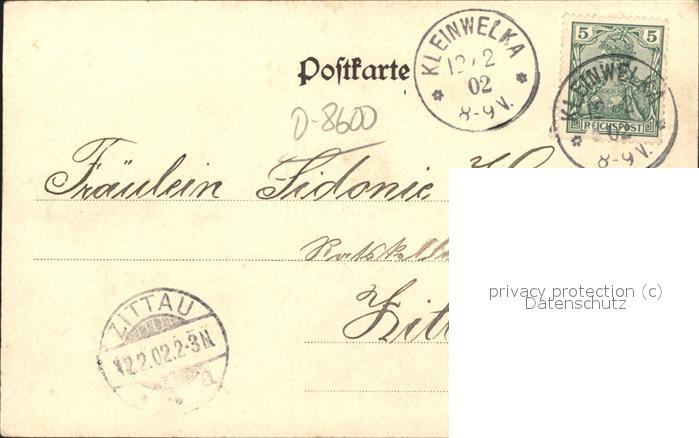 Postkarte
KLEINWELKA
12/2
02
8-9 V.
5 5
REICHSPOST
KLEINWELKA
02
8-9 V.
D-8600
Fräulein Sidonie
Ratskell
Zitt
privacy protection (c)
Datenschutz
ZITTAU
12.2.02.2-3N
a